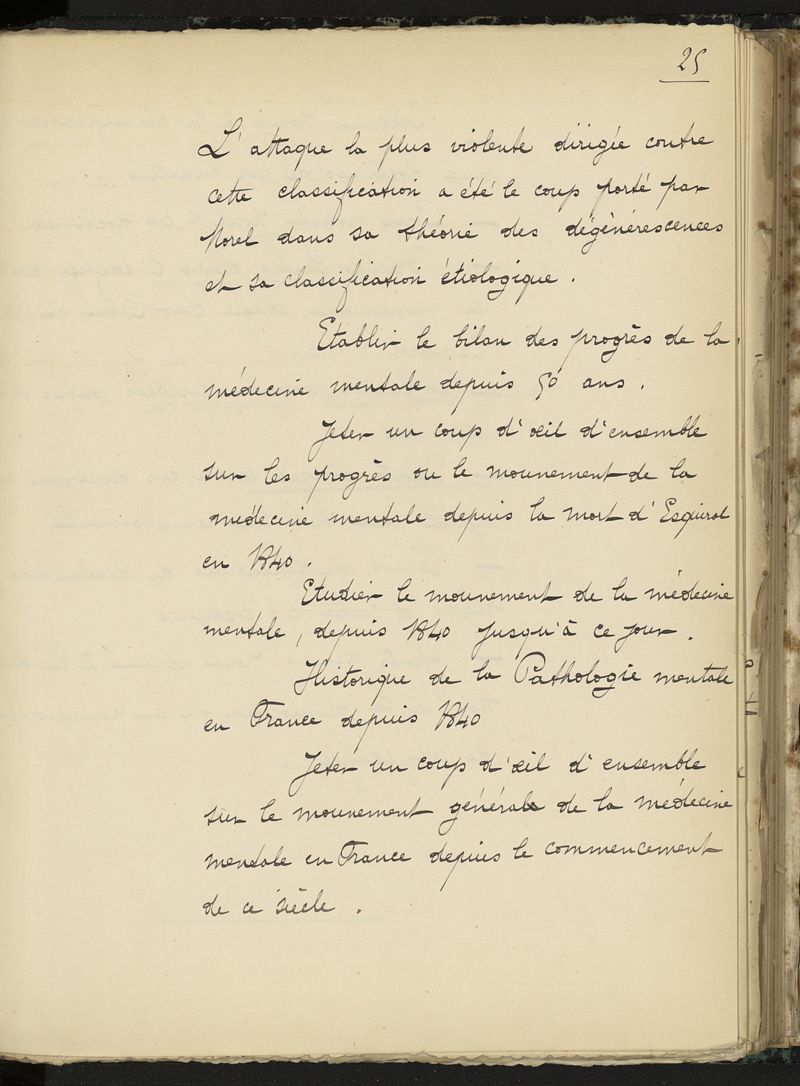 25
L'attaque la plus violente dirigée contre
cette classification a été le coup porté par
Morel dans sa théorie des dégénérescences
et sa classification étiologique.
Etablir le bilan des progrès de la
médecine mentale depuis 50 ans.
Jeter un coup d'œil d'ensemble
sur les progrès ou le mouvement de la
médecine mentale depuis la mort d'Esquirol
en 1840.
Etudier le mouvement de la médecine
mentale, depuis 1840 jusqu'à ce jour.
Historique de la Pathologie mentale
en France depuis 1840
Jeter un coup d'œil d'ensemble
sur le mouvement général de la médecine
mentale en France depuis le commencement
de ce siècle.